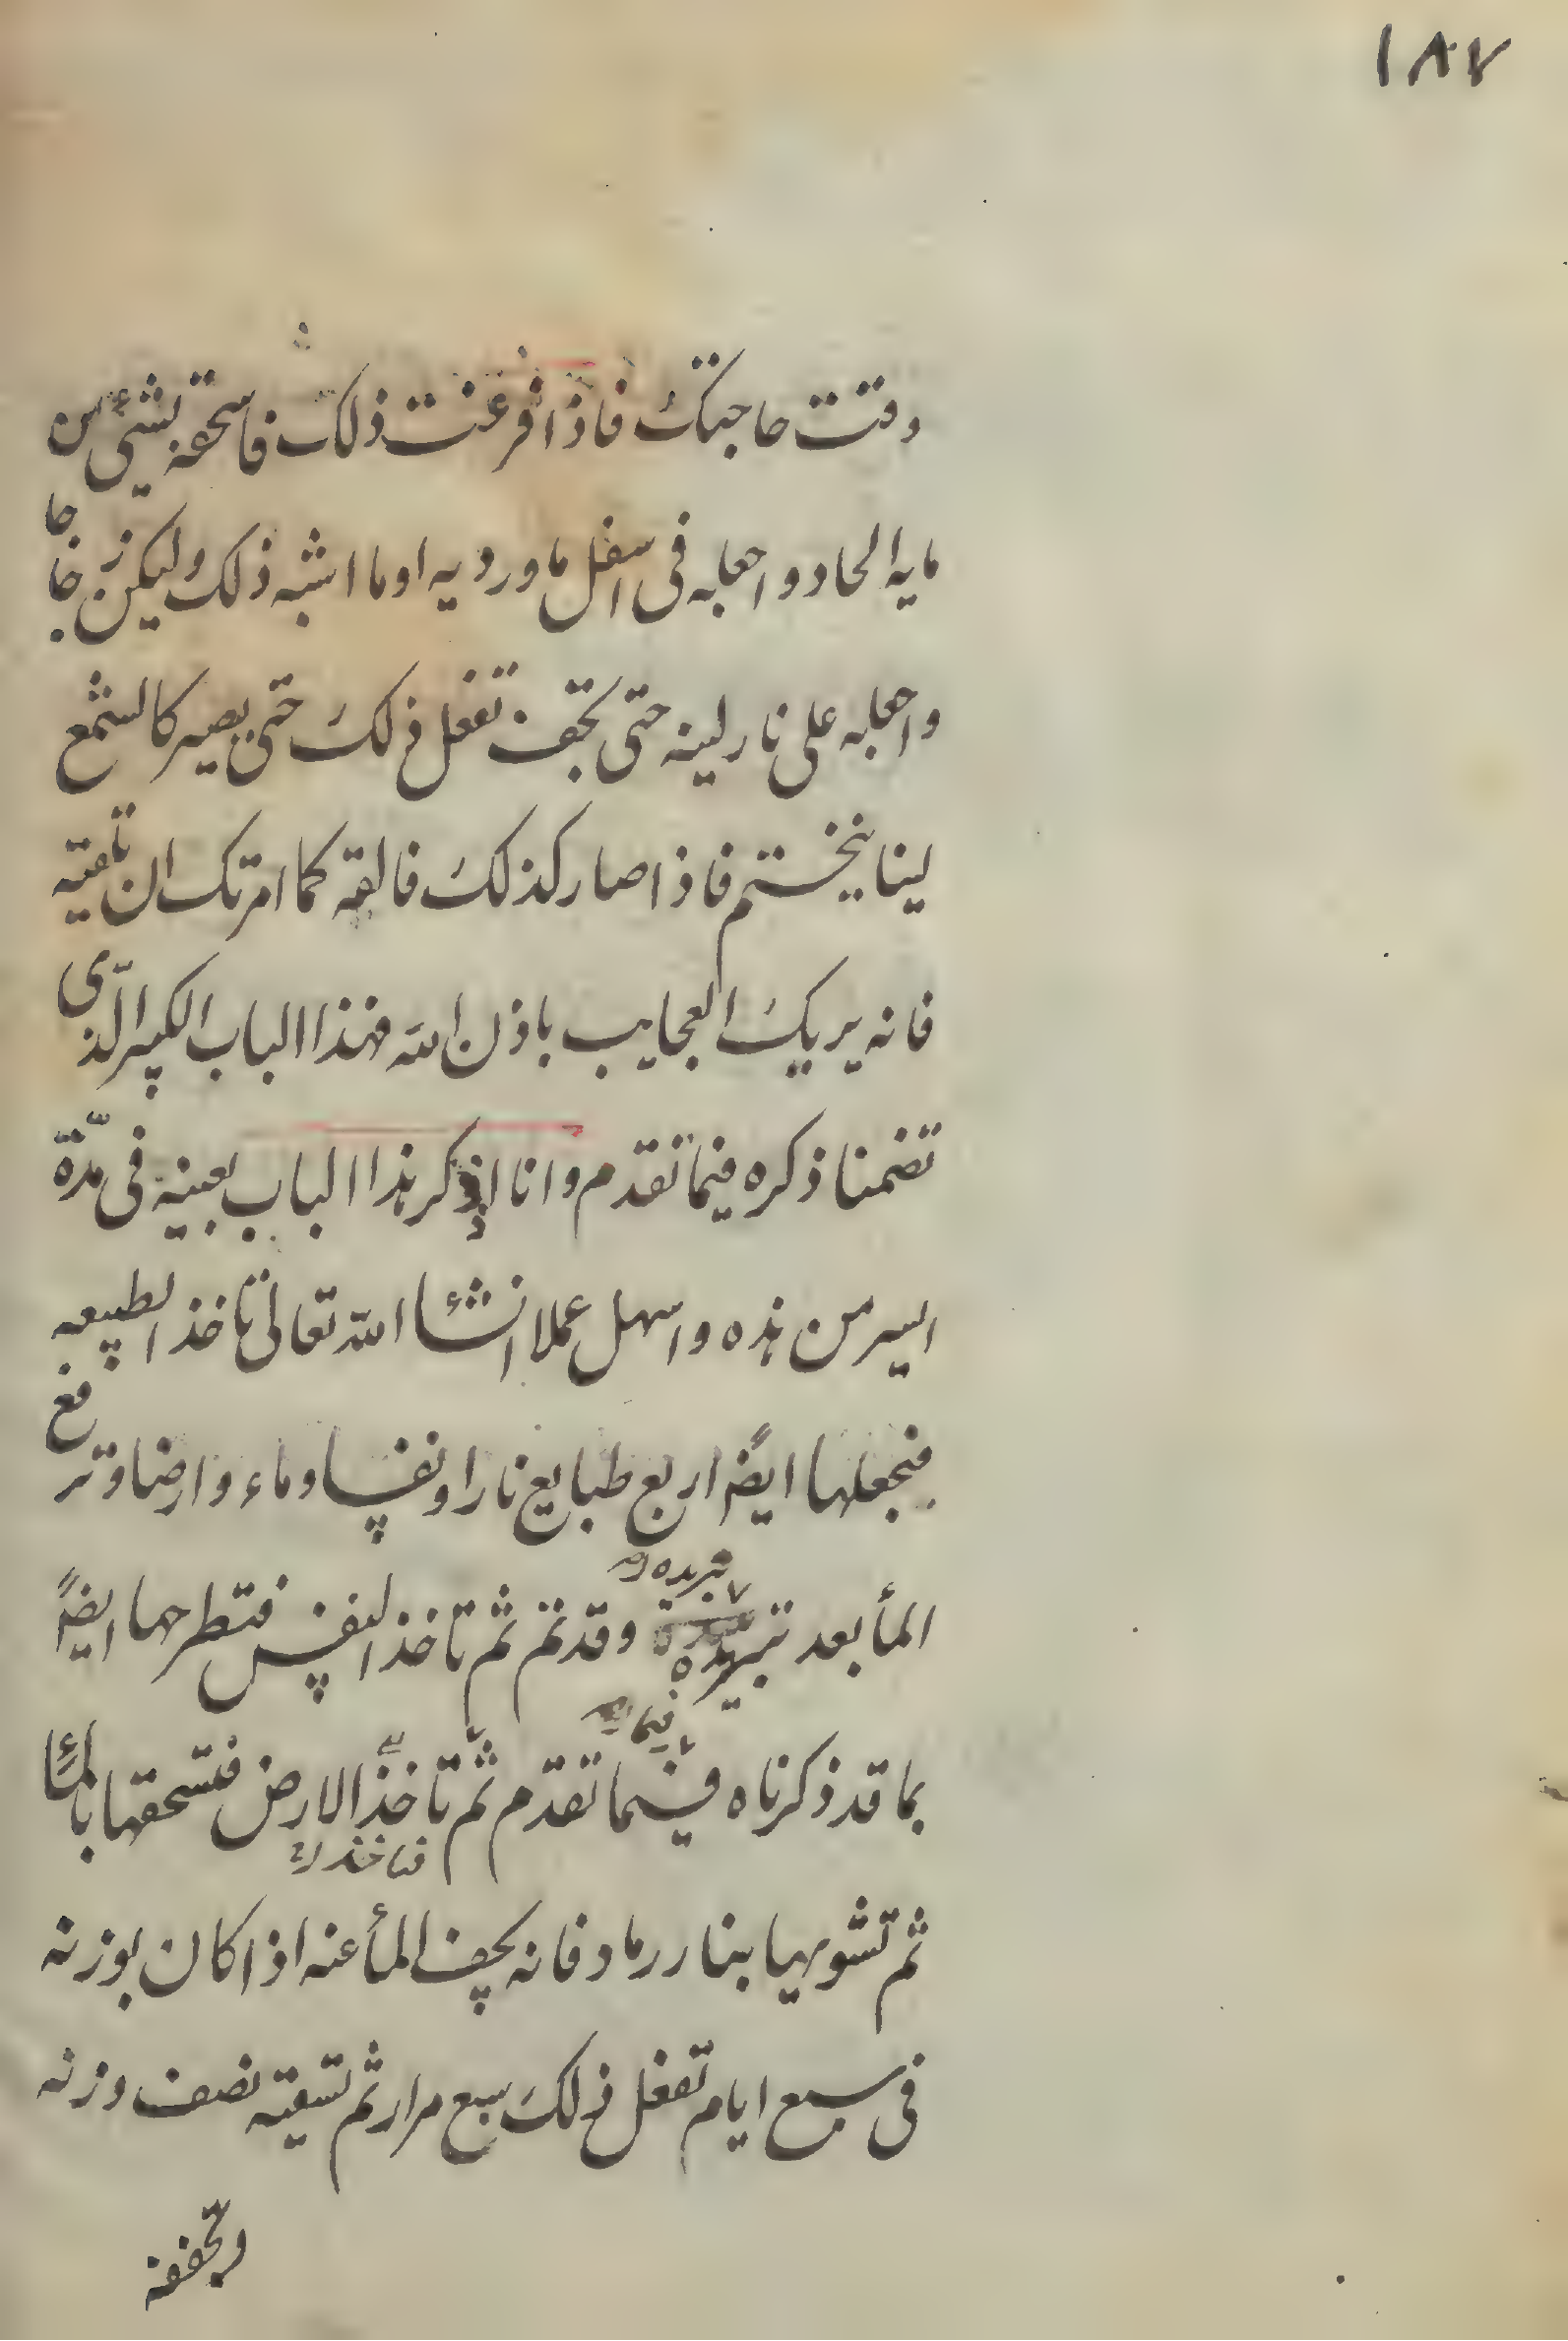 ١٨٧
وقت حاجتك فاذا فرغت ذلك فاسحقه بشئ من
مايه الحاد واجعله فى اسفل ماورديه او ما اشبه ذلك وليكن زجاجا
واجعله على نار لينه حتى تجف تفعل ذلك حتى يصير كالشمع
لينا ينختم فاذا صار كذلك فالقه كما امرتك ان تلقيه
فانه يريك العجايب باذن الله فهذا الباب الكبير الذى
تضمنا ذكره فيما تقدم وانا اذكر هذا الباب بعينه فى مدّة
ايسر من هذه واسهل عملا انشاء الله تعالى تاخذ الطبيعه
فتجعلها ايضاً اربع طبايع نارا ونفسا وماء وارضا وترفع
تبريده
المأ بعد تبريده وقد تم ثم تاخذ النفس فتطرحها ايضاً
فيما
بما قد ذكرناه فيما تقدم ثم تاخذ الارض فتسحقها بالمأ
فتاخذ
ثم تشويها بنار رماد فانه يجف المأ عنه اذا كان بوزنه
فى سبع ايام تفعل ذلك سبع مرار ثم تسقيه نصف وزنه
وتجففه